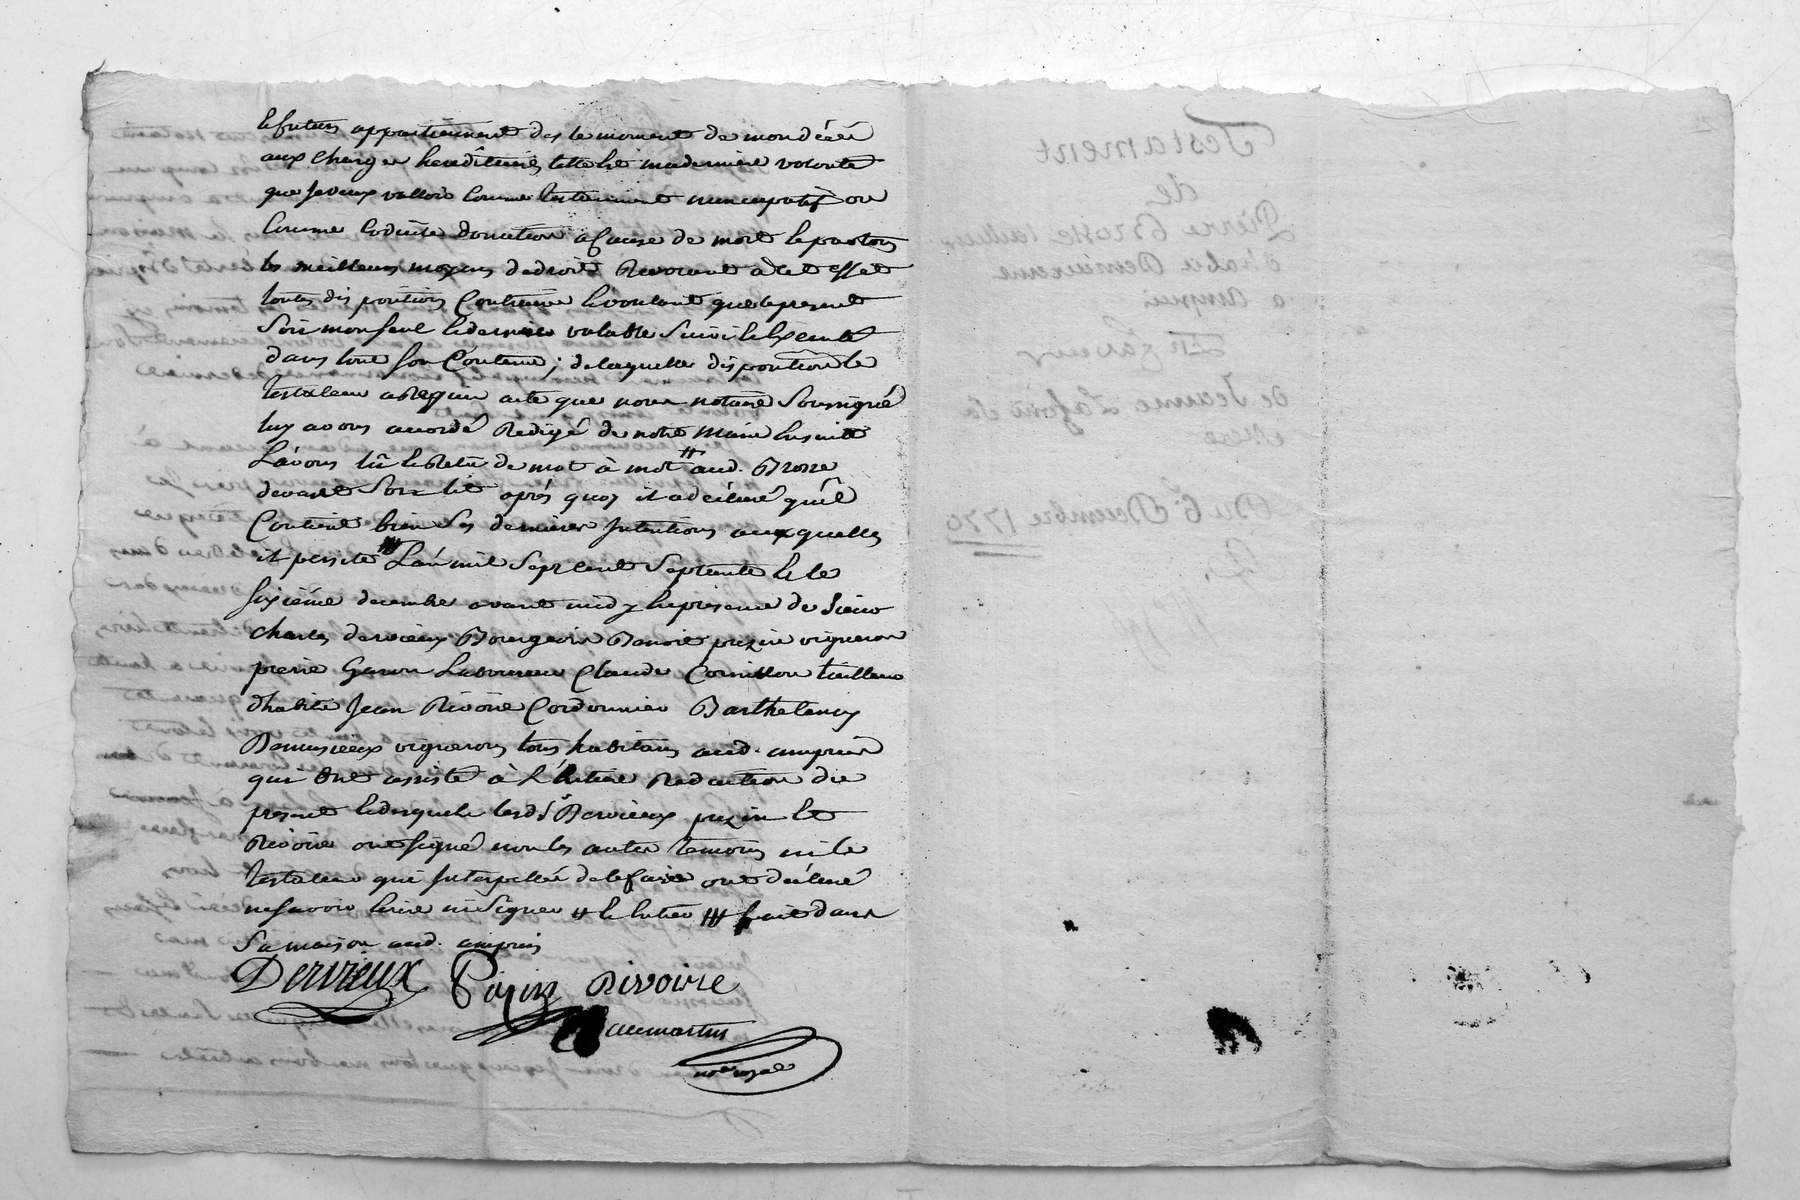 et futurs appartiennent des le moment de mon décéé
aux charges hereditaires telle est ma derniere volonté
que je veux valloir comme testament nuncupatif ou
comme codicile donation a cause de mort et par tous
les meilleurs moyens de droit Revocant a cet effet
toutes dispositions Contraires et voulant que le present
Soit mon seul et dernier valable Suivi et Executé
dans tout son Contenu; de laquelle disposition le
testateur a requis acte que nous notaire Soussigné
luy avons accordé Redigé de notre main ensuite
L'avons lû et Relu de mot à mot # aud. Brosse
devant Son lit après quoy il a déclaré qu'il
Contient bien Ses dernieres Intentions auxquelles
il persiste ### L'an mil Sept Cent Septente et le
Sixiéme decembre avant midy En presence de Sieur
Charles dervieux Bourgeois Benoit pupin vigneron
pierre Laboureur Claude Cornillon tailleur
d'habits Jean Rivoire Cordonnier Barthelemy
vigneron tous habitans aud. ampuis
qui ont assisté à L'entiere Redaction du
present et desquels lesd. Srs Dervieux pupin et
Rivoire ont signé non les autres temoins ni le
testateur qui Interpellés de le faire ont déclaré
ne savoir Ecrire ni Signer # ### fait dans
Sa maison aud. ampuis
Dervieux Pupin Rivoire
aumartin
nore royal
Testament
de
Pierre Brosse tailleur
d'habit Demeurant
a Ampui
En faveur
de Jeanne Lafond sa
Du 6e Decembre 1770